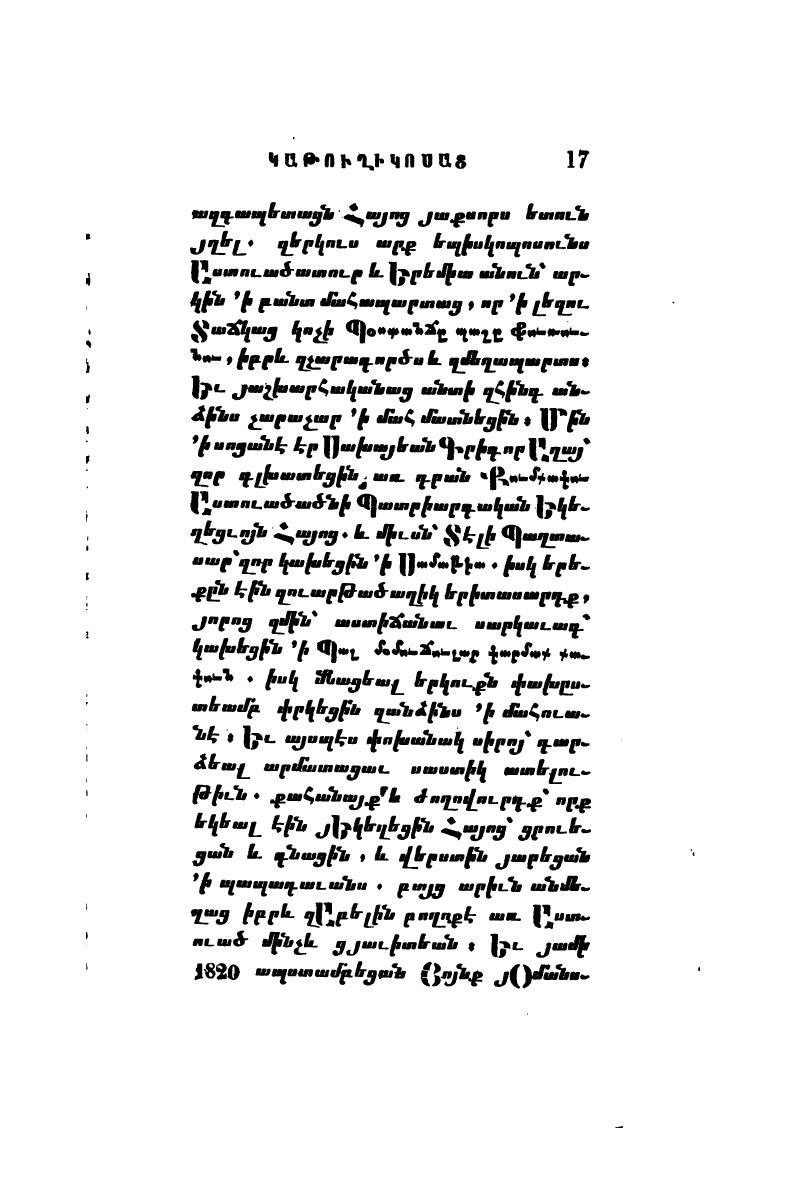 ԿԱԹՈՒՂԻԿՈՍԱՑ 17
ազգապետացն Հայոց յաքսորս ետուն
յղել. զերկուս արք եպիսկոպոսունս
Աստուածատուր և Երեմիա անուն՝ ար-
կին ՚ի բանտ մահապարտաց, որ ՚ի լեզու
Տաճկաց կոչի Պօսթանճը պաշը
իբրև զչարագործս և զմեղապարտս։
Եւ յաշխարհականաց անտի զհինգ ան-
ձինս չարաչար ՚ի մահ մատնեցին։ Մին
՚ի սոցանէ էր Սախայեան Գրիգոր Աղայ՝
զոր գլխատեցին առ դրան
Աստուածածնի Պատրիարգական Եկե-
ղեցւոյն Հայոց. և միւսն՝ Տէլի Պաղտա-
սար՝ զոր կախեցին ՚ի Սամաթիա. իսկ երե-
քըն էին զուարթածաղիկ երիտասարդք,
յորոց զմին՝ աստիճանաւ սարկաւագ՝
կախեցին ՚ի Պալ
իսկ մնացեալ երկուքն փախըս-
տեամբ փրկեցին զանձինս ՚ի մահուա-
նէ։ Եւ այսպէս փոխանակ սիրոյ՝ դար-
ձեալ արմատացաւ սաստիկ ատելու-
թիւն. քահանայք՛ և ժողովուրդք՝ որք
եկեալ էին յԵկեղեցին Հայոց՝ ցրուե-
ցան և գնացին, և վերստին յարեցան
՚ի պապադաւանս. բայց արիւն անմե-
ղաց իբրև զԱբելին բողոքէ առ Աստ-
ուած մինչև ցյաւիտեան։ Եւ յամի
1820 ապստամբեցան Յոյնք յՕմանս-